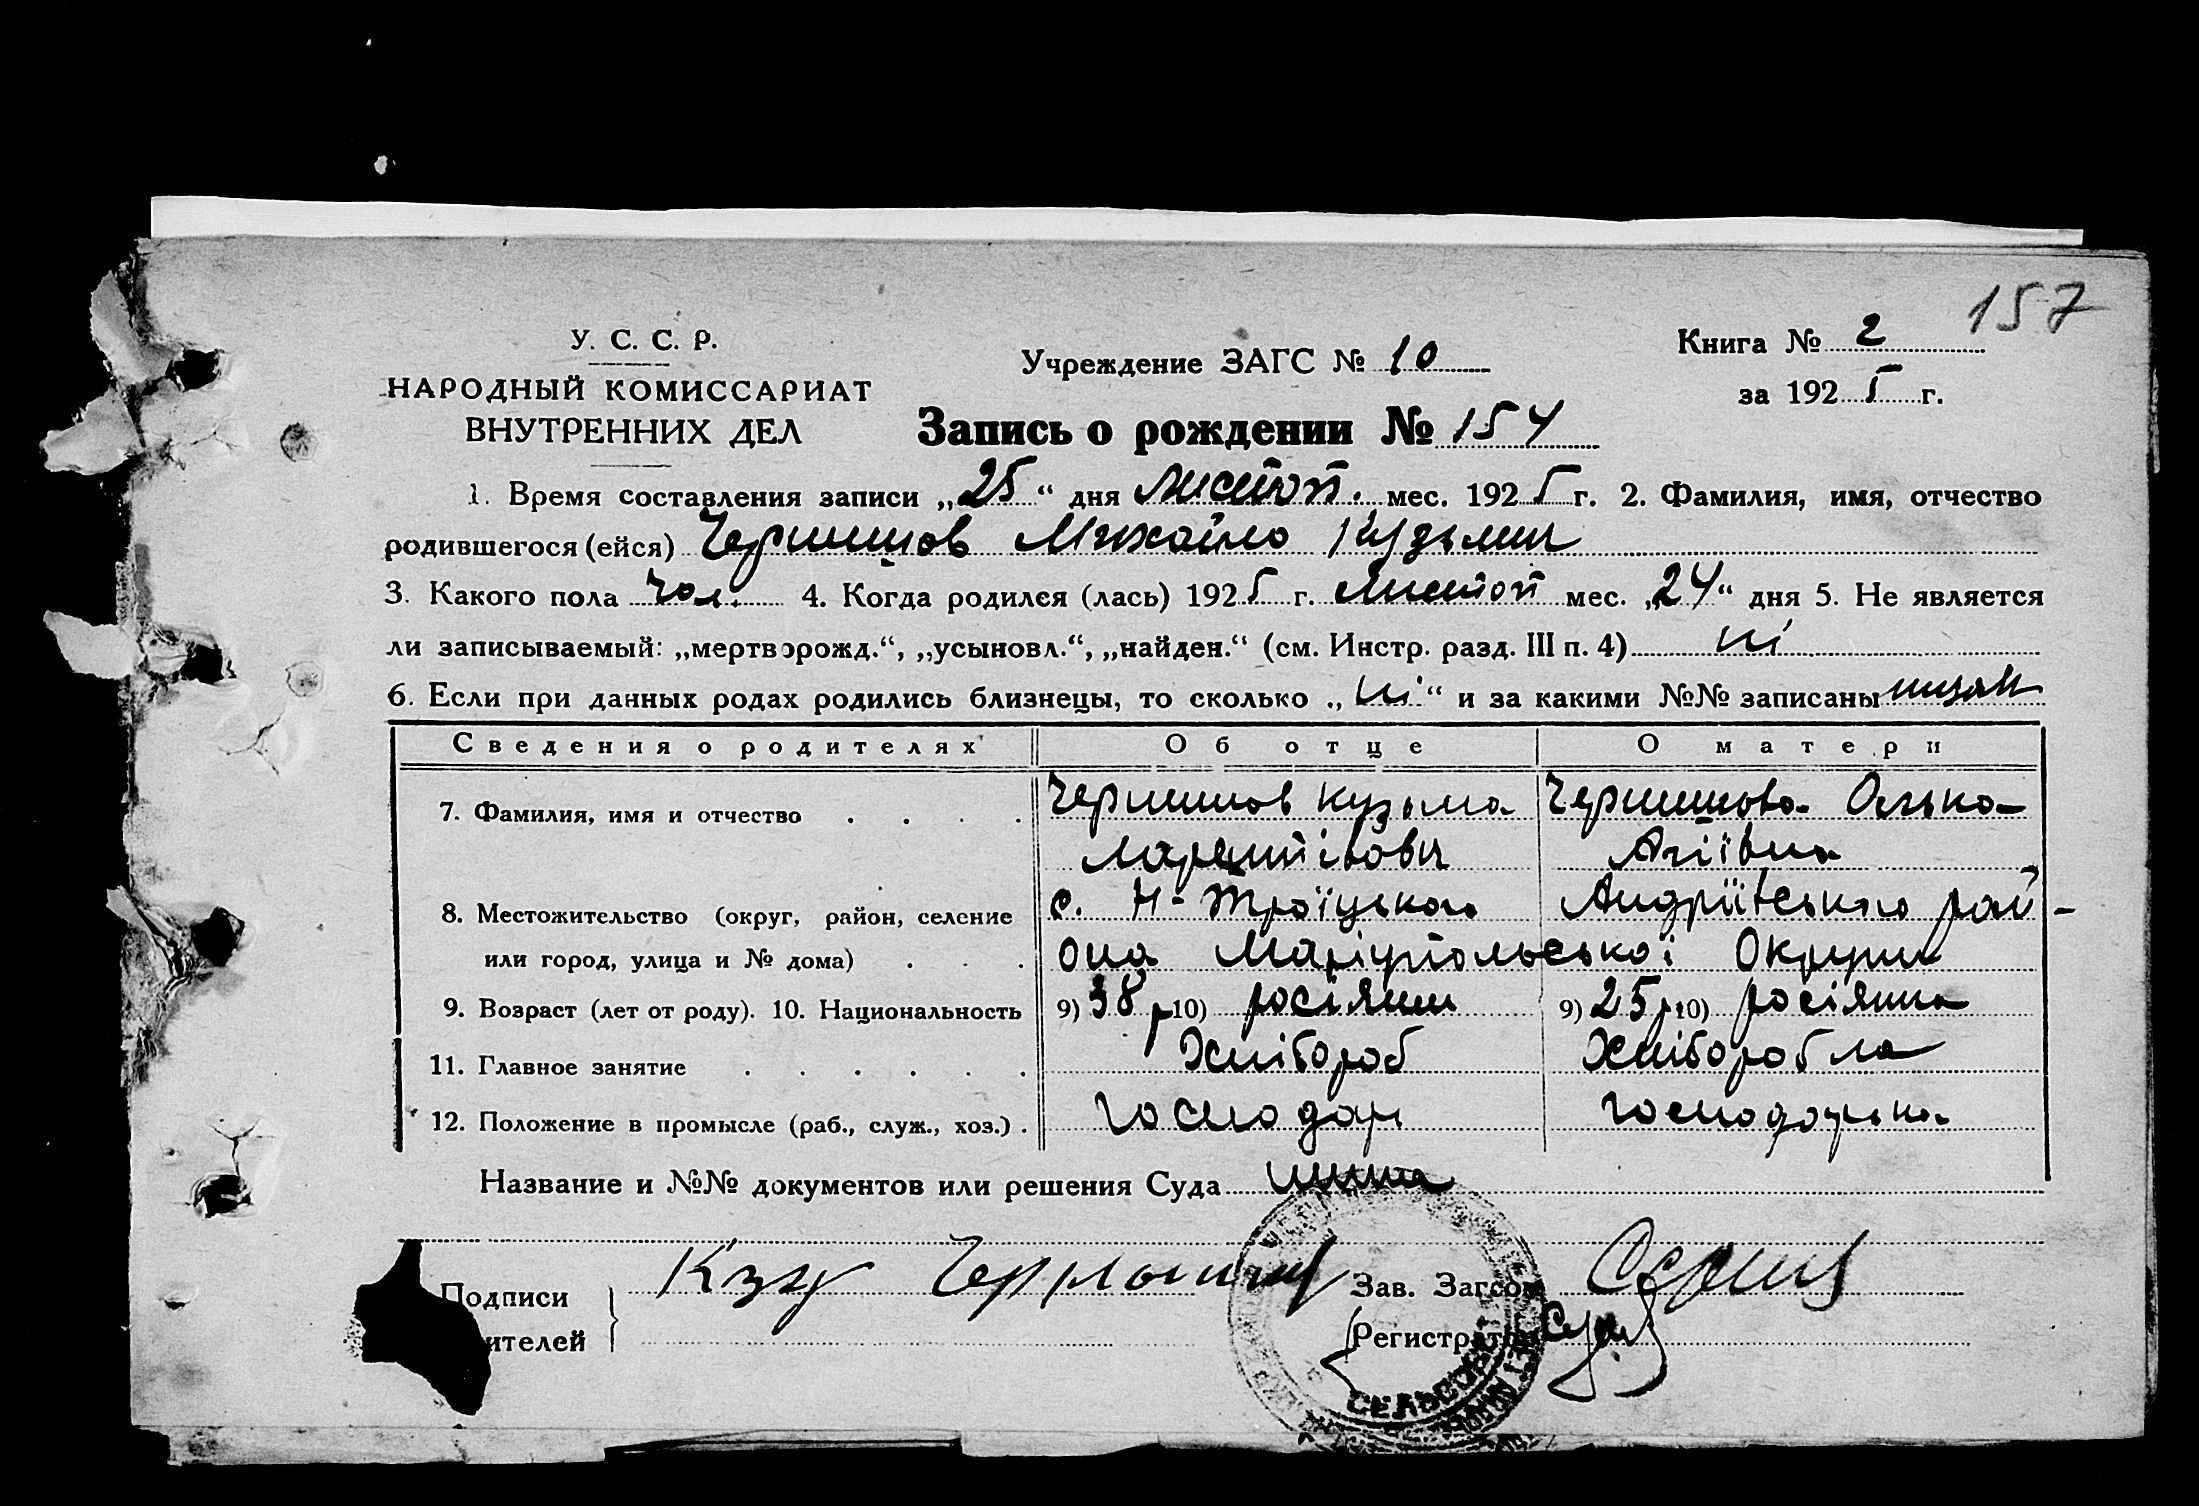 157
У. С. С. Р.
НАРОДНЫЙ КОМИССАРИАТ
ВНУТРЕННИХ ДЕЛ
Учреждение ЗАГС № 10
Книга № 2
за 1925 г.
Запись о рождении № 154
1. Время составления записи „25“ дня листоп. мес. 1925 г. 2. Фамилия, имя, отчество
родившегося (ейся) Михайло Кузьмич
3. Какого пола чол. 4. Когда родился (лась) 1925 г. листоп мес. „24“ дня 5. Не является
ли записываемый: „мертворожд.“, „усыновл.“, „найден.“ (см. Инстр. разд. III п. 4) ні
6. Если при данных родах родились близнецы, то сколько „ні“ и за какими №№ записаны
Сведения о родителях Об отце О матери
7. Фамилия, имя и отчество . . . . Кузьма
8. Местожительство (округ, район, селение с. Н-Троїцького Андріївського рай-
или город, улица и № дома) . . . она Маріупольської Округи
9. Возраст (лет от роду). 10. Национальность 9) 38 р 10) росіянин 9) 25 р 10) росіянка
11. Главное занятие . . . . . . Хлібороб Хлібороб ка
12. Положение в промысле (раб., служ., хоз.) . господар господарька
Название и №№ документов или решения Суда нима
Подписи Зав. Загсом
ителей Регистратор
СЕЛЬСОВЕТ